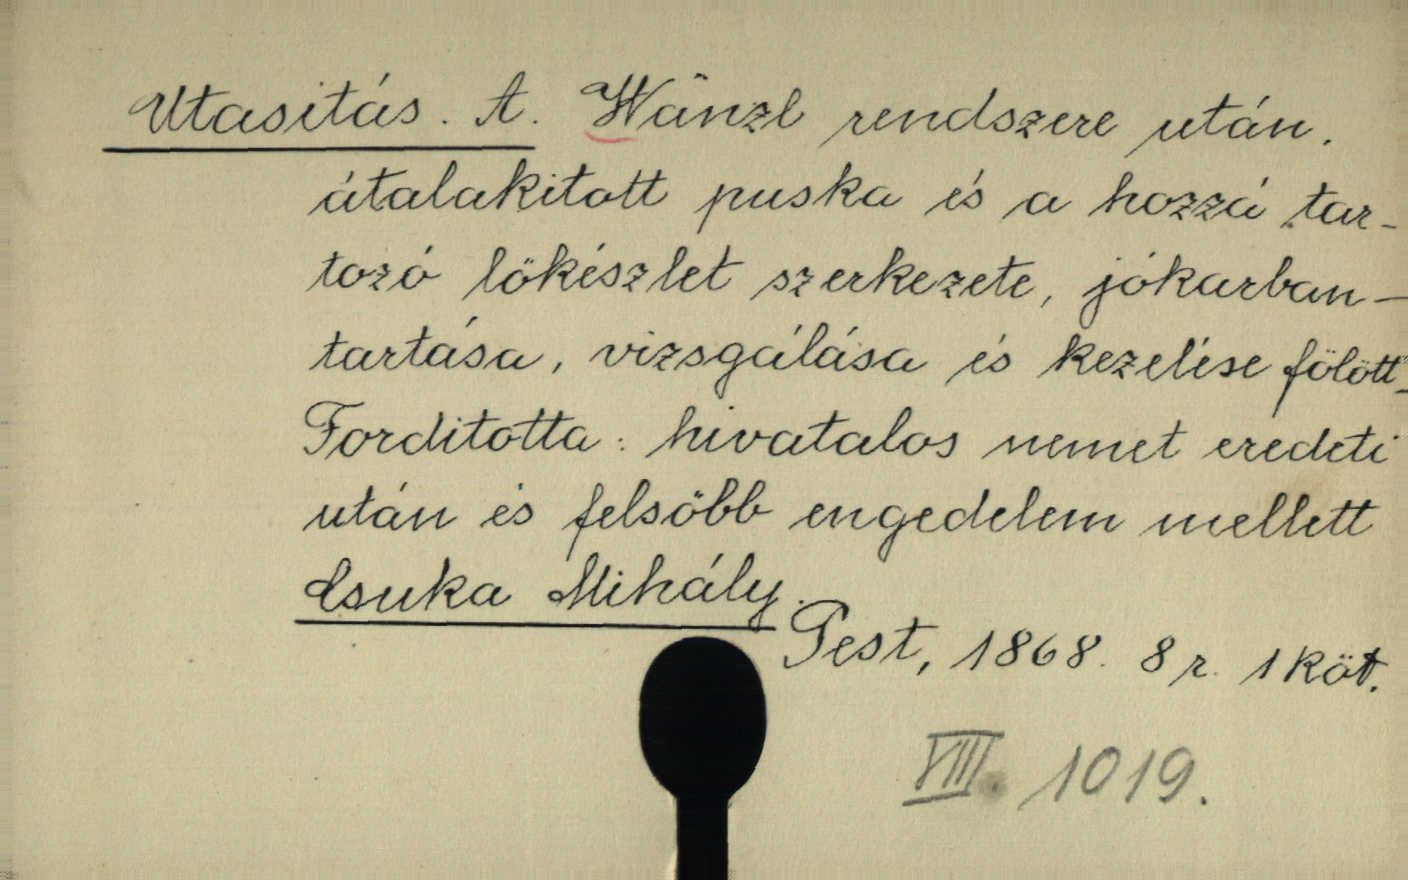 Utasitás. A. Wänzl rendszere után.
átalakitott puska és a hozzá tar-
tozó lökészlet szerkezete, jókarban-
tartása, vizsgálása és kezelése fölött_
Forditotta: hivatalos nemet eredeti
után és felsöbb engedelem mellett
Csuka Mihály.
Pest, 1868. 8 r. 1 köt.
VIII. 1019.